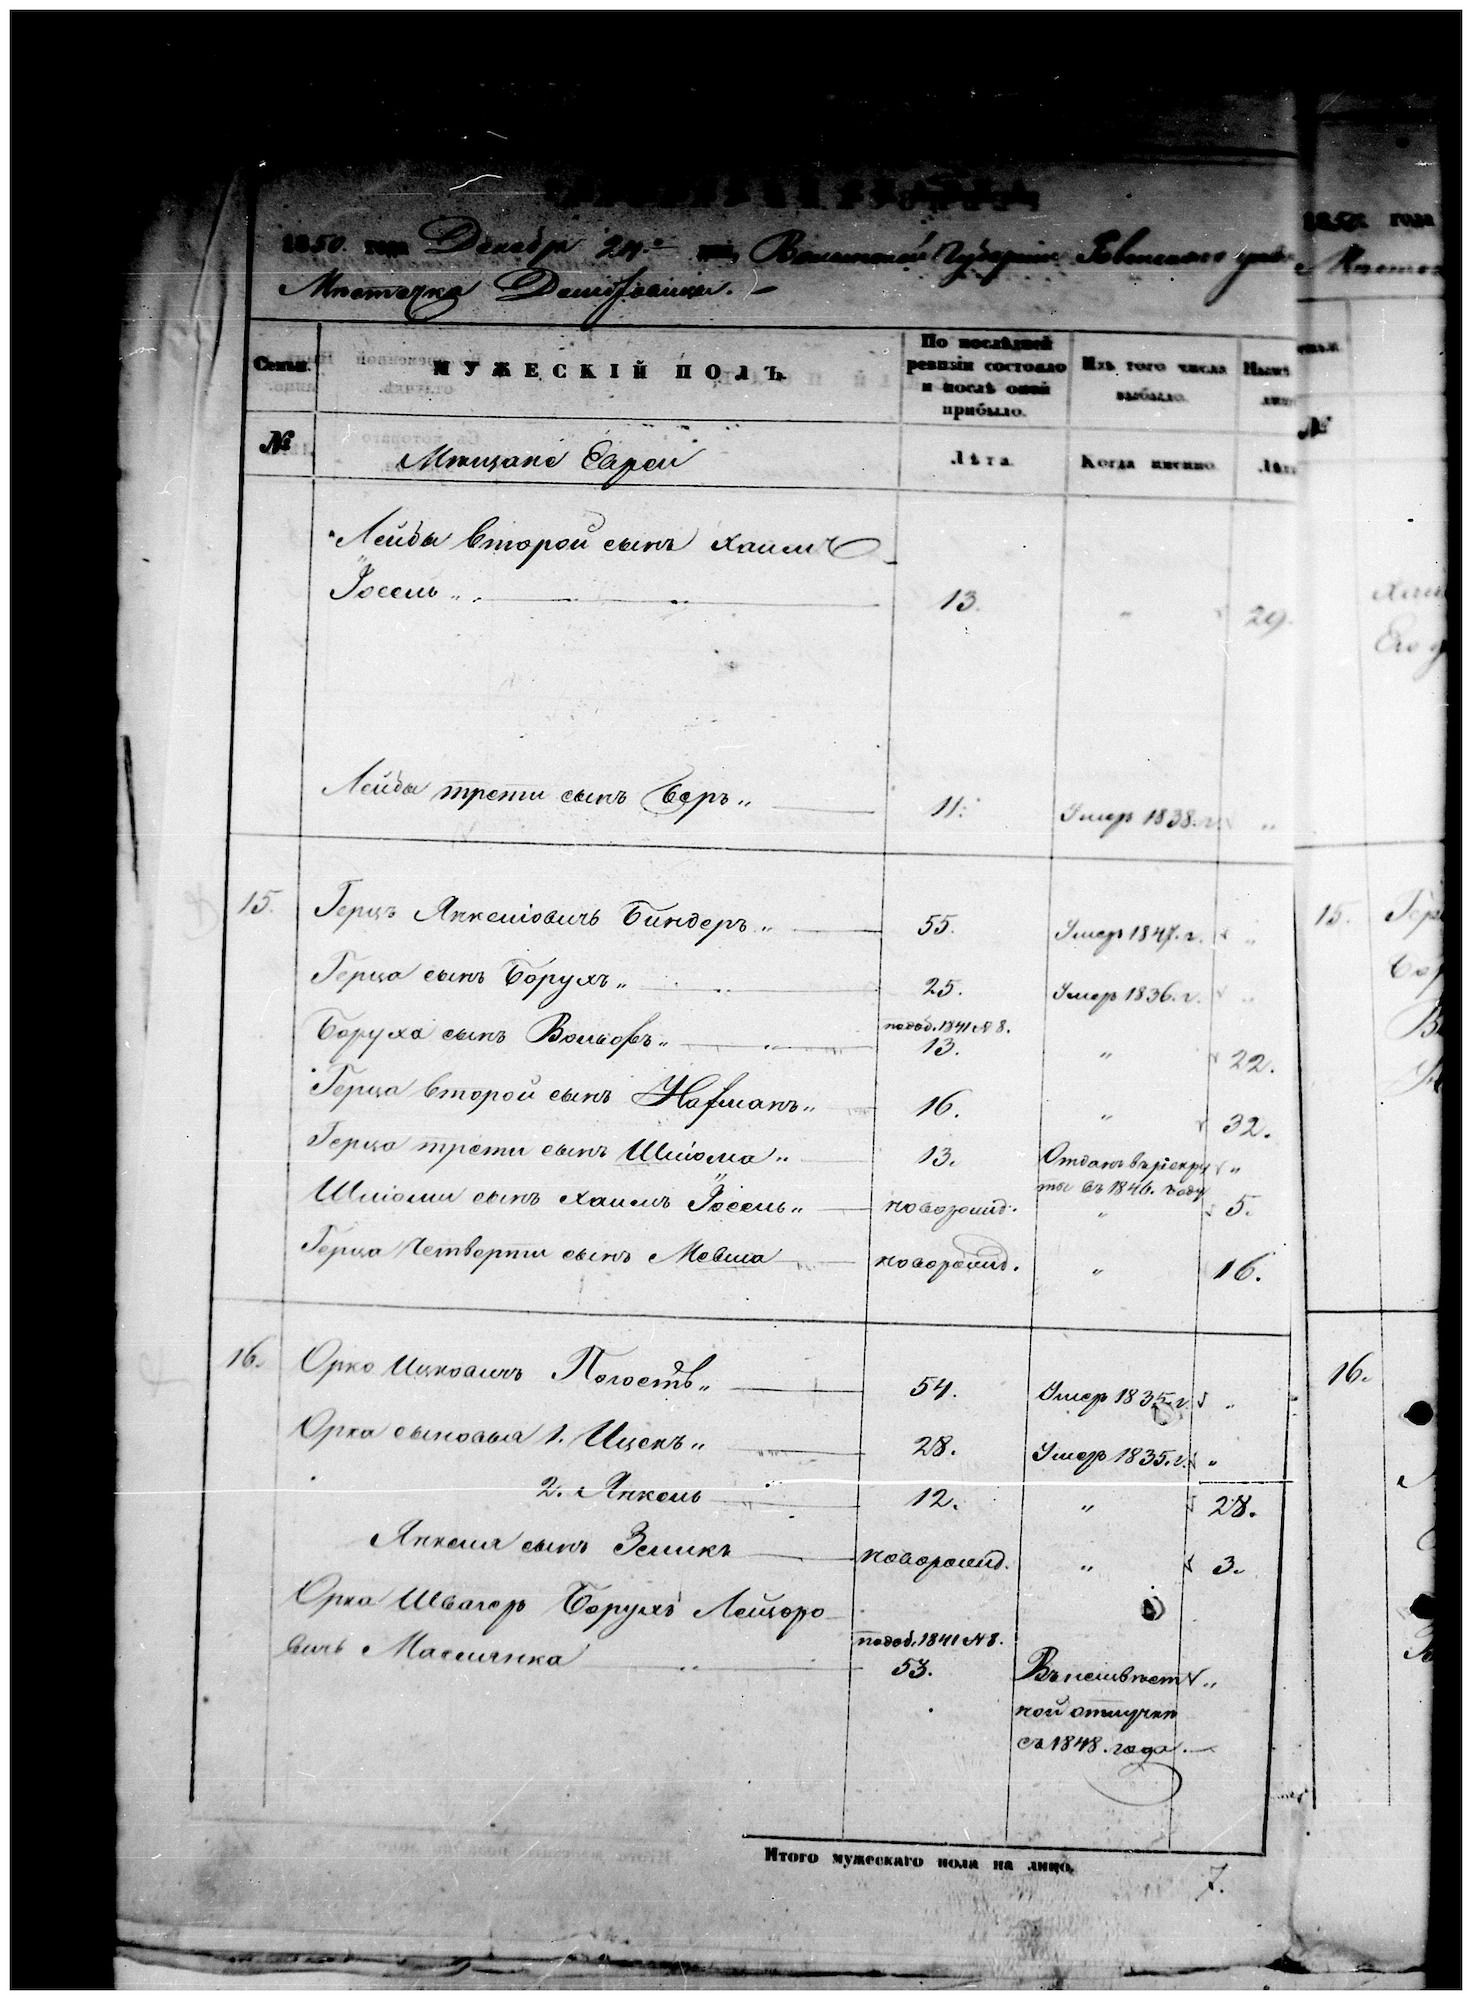 1850 года Декабр 24го дня, Волынской Губернии Ровенского уезда
Местечка Домбровица.
Семьи.
МУЖЕСКІЙ ПОЛЪ.
По послѣдней
ревизіи состояло
и послѣ оной
прибыло.
Изъ того числа
выбыло.
Нынѣ
лицо
№
Мещане Евреи
Лѣта.
Когда имянно.
Лѣта
Лейбы второй сынъ Хаимъ
Іосель „ 13. „ 29.
Лейбы трети сынъ Беръ „ 11. Умеръ 1838. г. „
15. Герцъ Янкеліовичъ Биндеръ „ 55. Умеръ 1847. г. „
Герца сынъ Борухъ „ 25. Умеръ 1836. г. „
Боруха сынъ Вольовъ „ подоб. 1841 № 8. 13. „ 22.
Герца второй сынъ Нафманъ „ 16. „ 32.
Герца трети сынъ Шліома „ 13. Отданъ въ рекру „
ты въ 1846. году
Шліоми сынъ Хаимъ Іосель „ новорожд. „ 5.
Герца Четверти сынъ Мовша новорожд. „ 16.
16. Орко Ицковичъ „ 54. Умеръ 1835. г. „
Орка сыновья 1. Ицекъ „ 28. Умеръ 1835. г. „
2. Янкель 12. „ 28.
Янкеля сынъ Зеликъ новорожд. „ 3.
Орка Швагеръ Борухъ Лейзоро
вичъ подоб. 1841 № 8. 53. Въ неизвѣст „
ной отлучки
съ 1848. года.
Итого мужескаго пола на лицо. 7.
1850. года
№
15.
16.